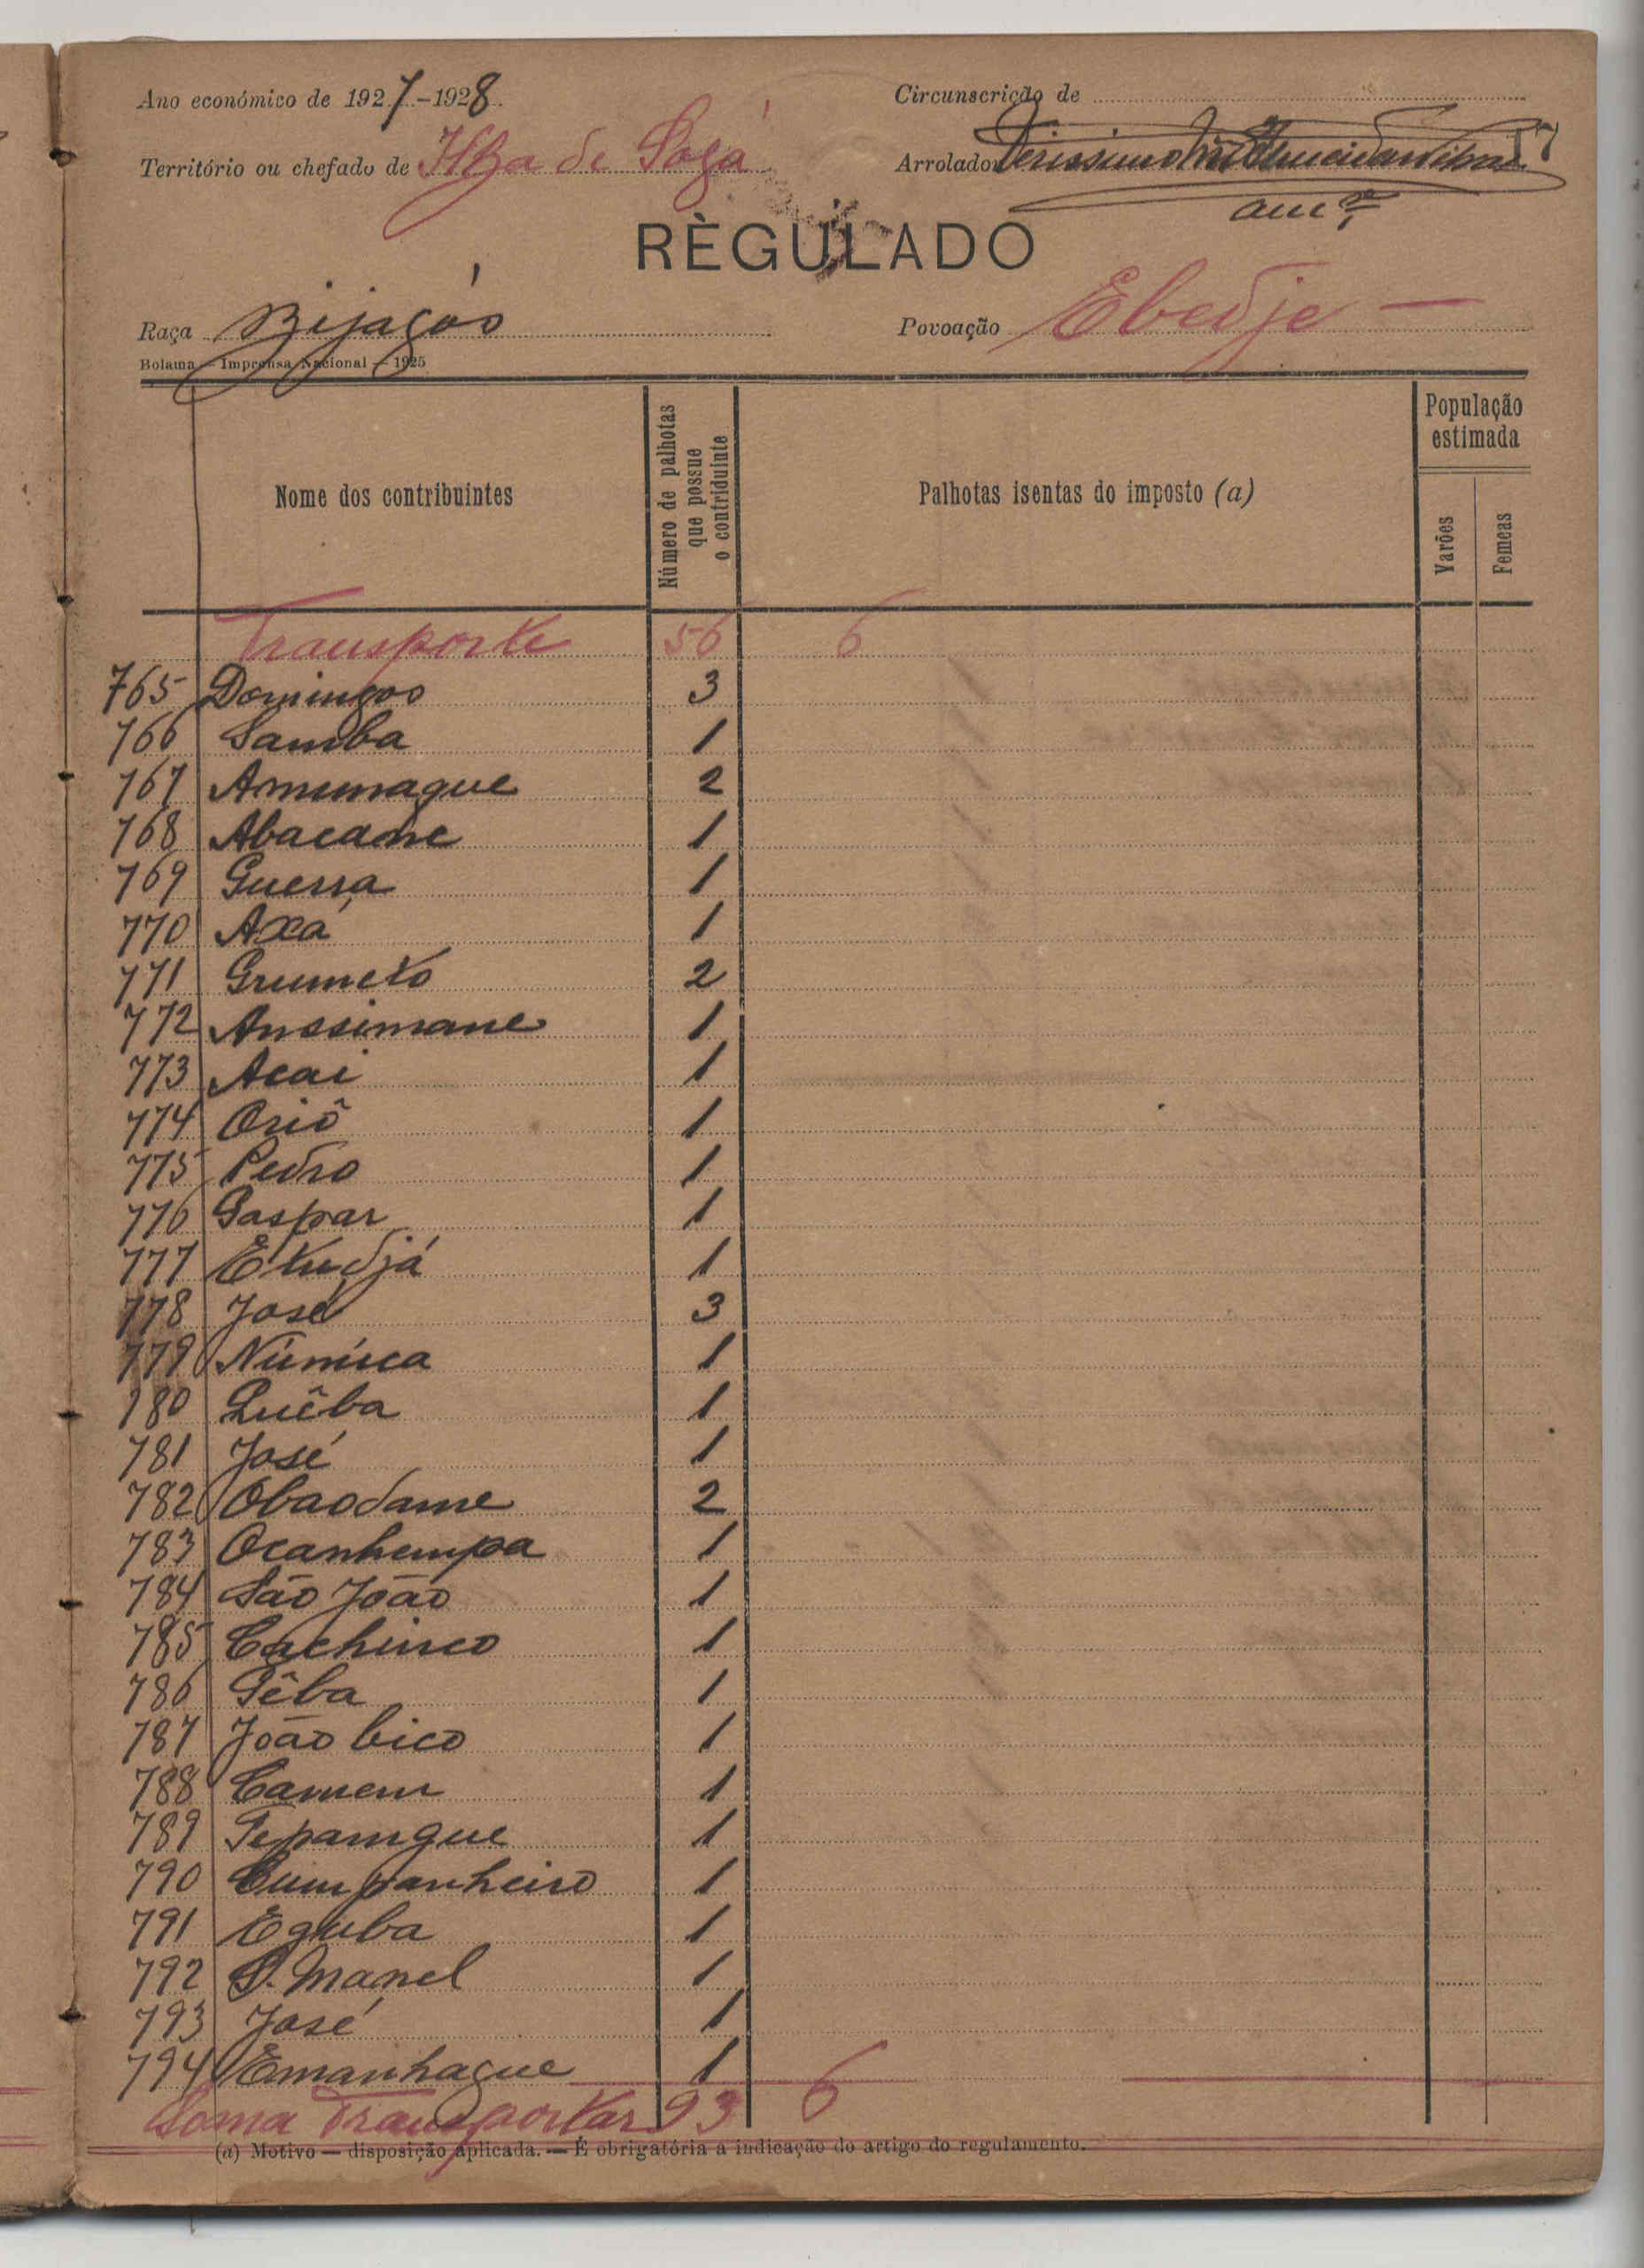 Ano económico de 1927-1928
Circunscrição de
17
Território ou chefado de Ilha de Sogá
Arrolador
RÈGULADO
Raça Bijagós
Povoação Ebedje
Bolama — Imprensa Nacional — 1925
Nome dos contribuintes
Número de palhotas que possue o contriduinte
Palhotas isentas do imposto (a)
População estimada
Varões
Femeas
Transporte 56 6
765 Domingos 3
766 Samba 1
767 Amunague 2
768 Abacane 1
769 Guerra 1
770 Axá 1
771 Grumeto 2
772 Anssimane 1
773 Acai 1
774 Oriô 1
775 Pedro 1
776 Gaspar 1
777 1
778 José 3
779 1
780 Luêba 1
781 José 1
782 Obaodame 2
783 Ocanhempa 1
784 São João 1
785 Cachinco 1
786 1
787 João bico 1
788 1
789 1
790 Cumpanheiro 1
791 Eguba 1
792 S. Manel 1
793 José 1
794 Emanhague 1
Soma Transportar 93 6
(a) Motivo — disposição aplicada. — É obrigatória a indicação do artigo do regulamento.